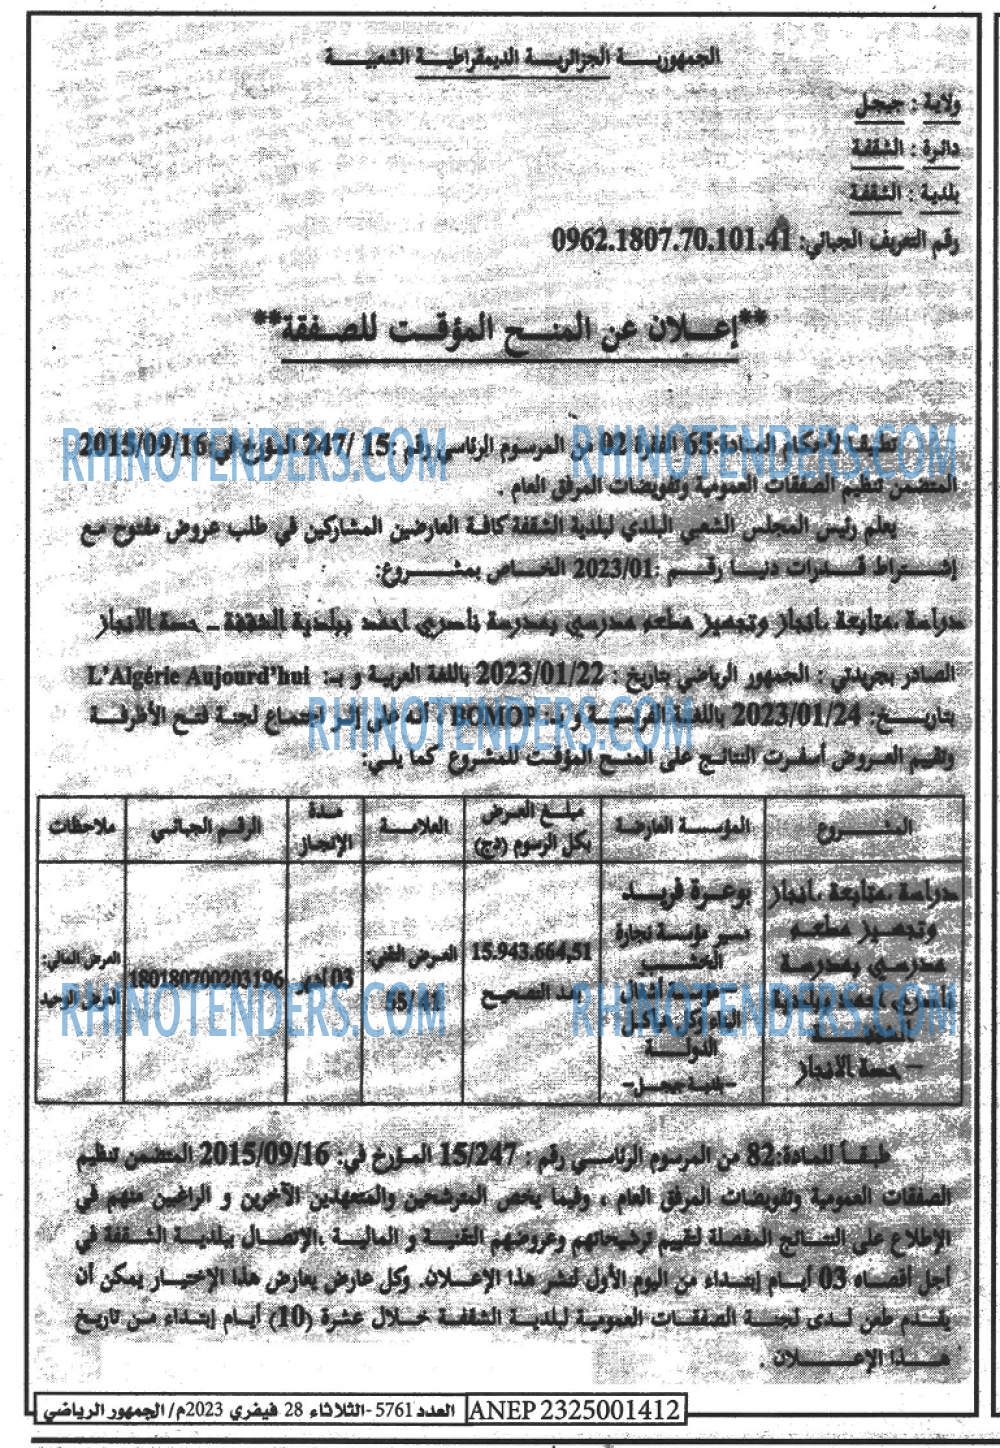 الجمهوريــة الجزائريــة الديمقراطيــة الشعبيــة
ولاية : جيجل
دائرة : الشقفة
بلدية : الشقفة
رقم التعريف الجبائي: 0962.1807.70.101.41
**إعـلان عن المنـح المؤقـت للصـفقة**
تطبيقا لأحكام المـادة:65 الفقرة 02 من المرسوم الرئاسي رقم :15 /247 المؤرخ في 2015/09/16
المتضمن تنظيم الصفقات العمومية وتفويضات المرفق العام .
يعلم رئيس المجلس الشعبي البلدي لبلدية الشقفة كافـة العارضين المشاركين في طلب عروض مفتوح مـع
إشــتراط قـدرات دنيـا رقــم :2023/01 الخـاص بمشــروع:
دراسة ،متابعة ،انجاز وتجهيز مطعم مدرسي بمدرسة ناصري احمد ببلدية الشقفة – حصة الانجاز
الصادر بجريدتي : الجمهور الرياضي بتاريخ : 2023/01/22 باللغة العربية و بـ: L'Algérie Aujourd'hui
بتاريــخ: 2023/01/24 باللغـة الفرنسيــة و بـ: BOMOP ، أنه على إثـر اجتمـاع لجنـة فتـح الأظرفــة
وتقييم العـروض أسفـرت النتائـج على المنـح المؤقـت للمشـروع كما يلـي:
المشـــروع
المؤسســة العارضة
مبلـغ العـرض بكـل الرسوم (دج)
العلامــة
مـدة الإنجـاز
الرقـم الجبائـي
ملاحظات
دراسة ،متابعة ،انجاز وتجهيز مطعم مدرسي بمدرسة ناصري أحمد ببلدية الشقفـة – حصة الانجاز
بوعـزة فريـد
مؤسسة نجارة الخشب
–مؤسسة أشغال البناء وكل هياكل الدولة
–بلدية جيجـل–
15.943.664,51 بعد التصحيـح
العـرض التقني: 55/41
03 أشهر
180180700203196
العرض المالي: العرض الوحيد
طبقـاً للمـادة:82 من المرسوم الرئاسـي رقم : 15/247 المـؤرخ في: 2015/09/16 المتضمن تنظيم
الصفقات العمومية وتفويضات المرفق العام ، وفيما يخص المترشحين والمتعهدين الآخرين و الراغبين منهم في
الإطلاع على النتـائج المفصلة لتقييم ترشيحاتهم وعروضهم التقنية و المالية ،الإتصال ببلدية الشقفة في
أجل أقصاه 03 أيـام إبتـداء من اليوم الأول لنشر هذا الإعـلان. وكل عارض يعارض هذا الإختيـار يمكن أن
يقـدم طعن لـدى لجنـة الصفقـات العمومية لبلدية الشقفة خـلال عشرة (10) أيـام إبتداء مـن تاريخ
هـذا الإعـلان .
العدد 5761 -الثلاثاء 28 فيفري 2023م/ الجمهور الرياضي
ANEP 2325001412
RHINOTENDERS.COM
RHINOTENDERS.COM
RHINOTENDERS.COM
RHINOTENDERS.COM
RHINOTENDERS.COM